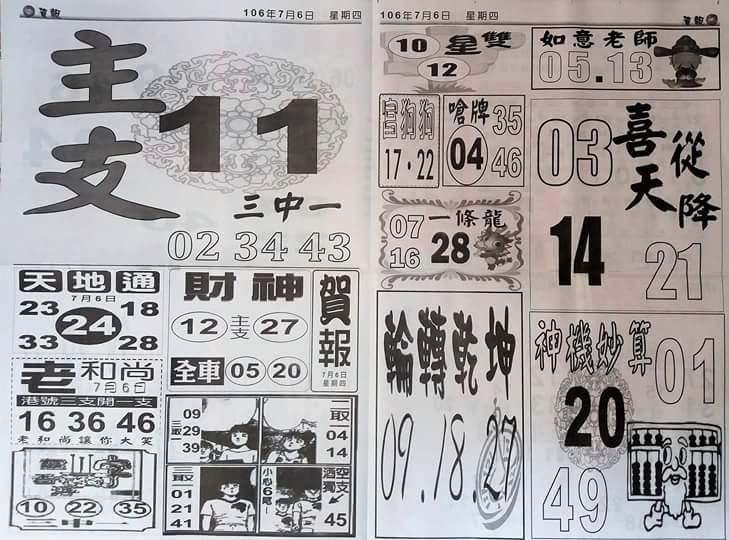 106年7月6日 星期四
主支
11
三中一
02 34 43
天地通
7月6日
23 18
24
33 28
財神
12 主支 27
全車 05 20
賀報
7月6日
星期四
老和尚
7月6日
港號三支開一支
16 36 46
老和尚讓你大笑
10 22 35
三中一
三取一
09
29
39
二取一
04
14
三取一
01
21
41
小心6尾
空支
酒獨
45
106年7月6日 星期四
星雙
10
12
如意老師
05.13
狗狗
17·22
嗆牌
04
35
46
喜從天降
03
14
21
一條龍
07
16
28
輪轉乾坤
09.18.27
神機妙算
01
20
49